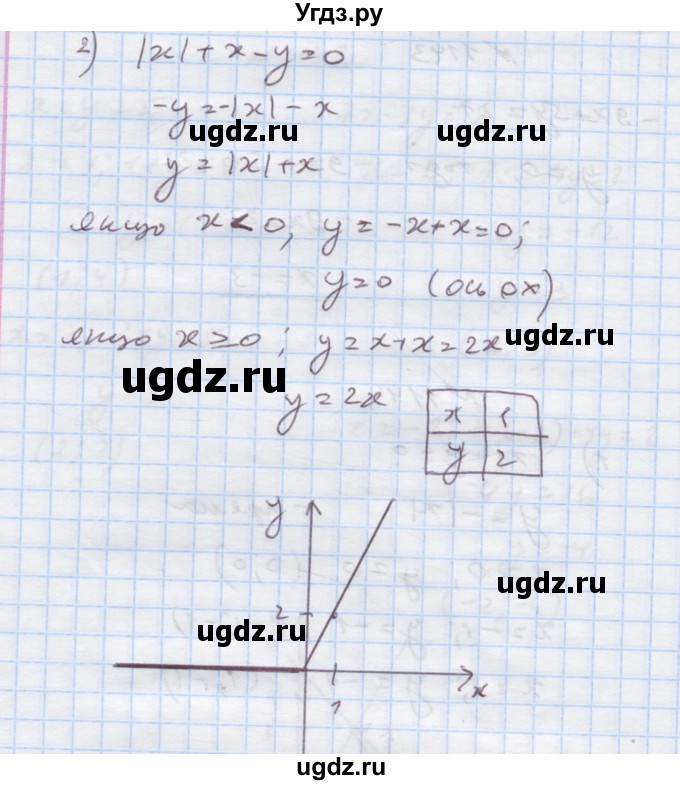 Угдз.ру
2) |x| + x - y = 0
-y = -|x| - x
ugdz.ru ugdz.ru
y = |x| + x
якщо x < 0, y = -x + x = 0;
y = 0 (ось ox)
якщо x ≥ 0; y = x + x = 2x
ugdz.ru ugdz.ru
y = 2x
x 1
y 2
y
ugdz.ru
2
ugdz.ru
x
1
ugdz.ru